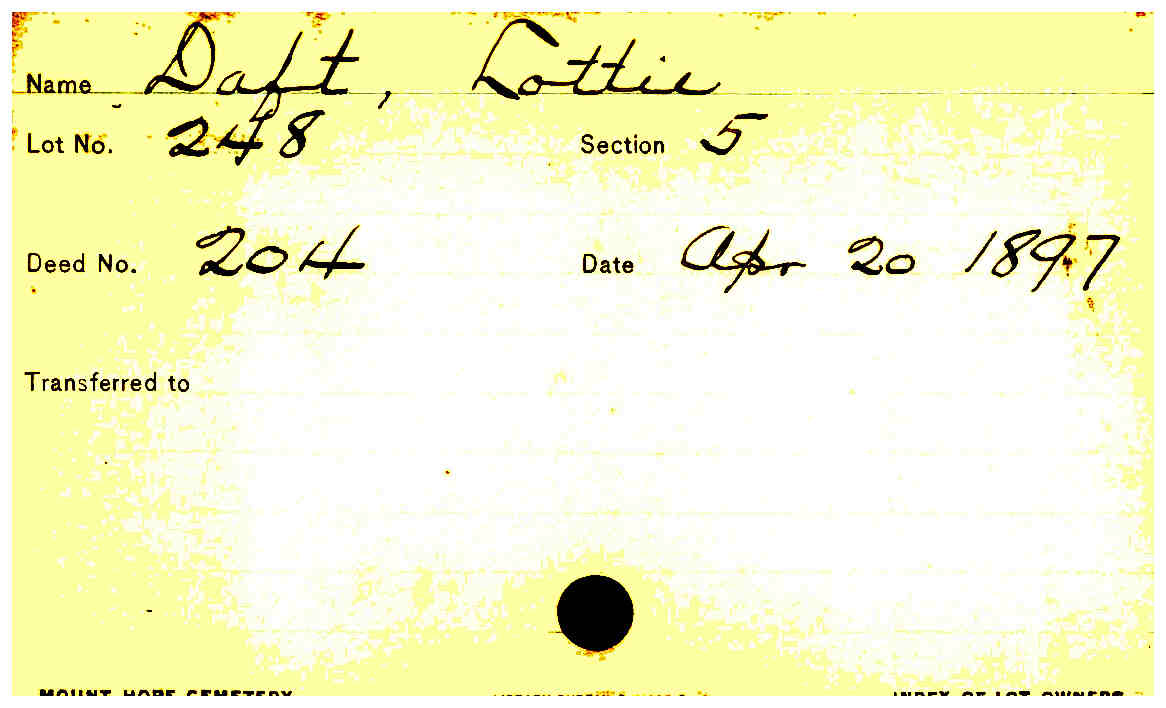 Name Daft, Lottie
Lot No. 248 Section 5
Deed No. 204 Date Apr 20 1897
Transferred to
MOUNT HOPE CEMETERY INDEX OF LOT OWNERS